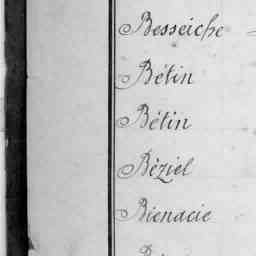 Besseiche
Bétin
Bétin
Béziel
Bienacie